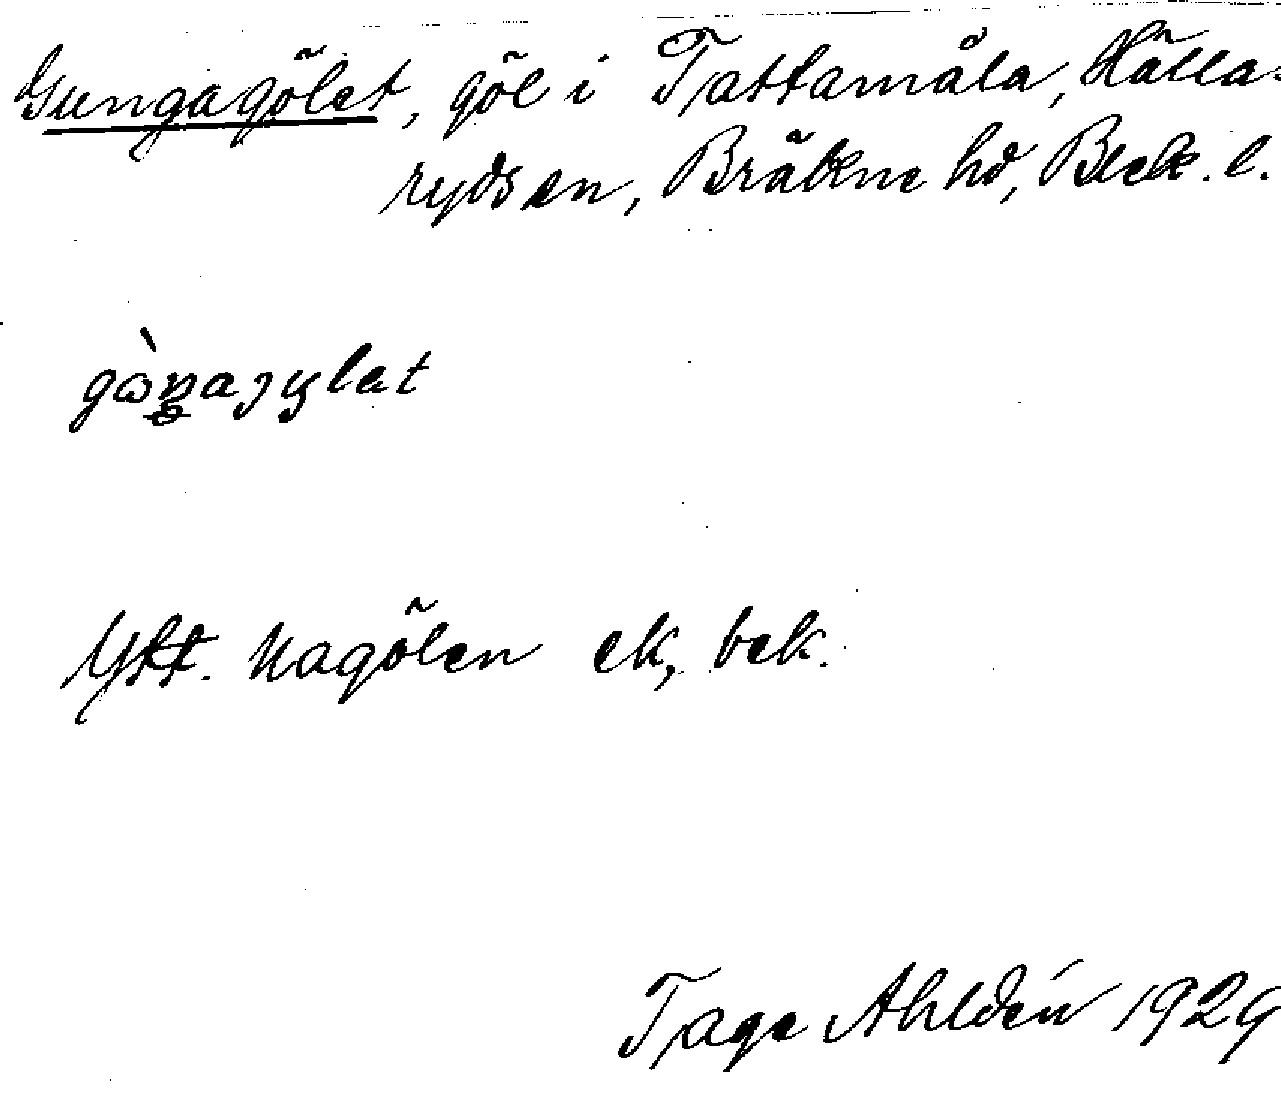 Gungagölet, göl i Tattamåla, Hälla-
ryds sn, Bräkne hd, Blek. l.
Ytt. Nagölen ek, bek.
Tage Ahldén 1929